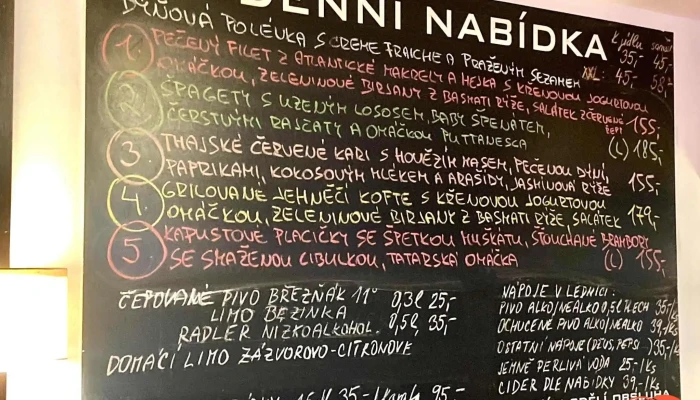 DENNÍ NABÍDKA
DÝŇOVÁ POLÉVKA S CREME FRAICHE A PRAŽENÝM SEZAMEM
K jídlu samos.
35,- 45,-
XXL: 45,- 58,-
1. PEČENÝ FILET Z ATLANTICKÉ MAKRELY A HEJKA S KŘENOVOU JOGURTOVOU
OMÁČKOU, ZELENINOVÉ BIRJANY Z BASMATI RÝŽE, SALÁTEK Z ČERVENÉ ŘEPY 155,-
2. ŠPAGETY S UZENÝM LOSOSEM, BABY ŠPENÁTEM,
ČERSTVÝMI RAJČATY A OMÁČKOU PUTTANESCA (L) 185,-
3. THAJSKÉ ČERVENÉ KARI S HOVĚZÍM MASEM, PEČENOU DÝNÍ,
PAPRIKAMI, KOKOSOVÝM MLÉKEM A ARAŠÍDY, JASMÍNOVÁ RÝŽE 155,-
4. GRILOVANÉ JEHNĚČÍ KOFTE S KŘENOVOU JOGURTOVOU
OMÁČKOU, ZELENINOVÉ BIRJANY Z BASMATI RÝŽE, SALÁTEK 179,-
5 KAPUSTOVÉ PLACIČKY SE ŠPETKOU MUŠKÁTU, ŠŤOUCHANÉ BRAMBORY
SE SMAŽENOU CIBULKOU, TATARSKÁ OMÁČKA (L) 155,-
ČEPOVANÉ PIVO BŘEZŇÁK 11° 0,3l 25,-
LIMO BEZINKA
RADLER NÍZKOALKOHOL. 0,5l 35,-
DOMÁCÍ LIMO ZÁZVOROVO-CITRONOVÉ
35,-/ 95,-
NÁPOJE V LEDNICI:
PIVO ALKO/NEALKO 0,5l PLECH 35,-/ks
OCHUCENÉ PIVO ALKO/NEALKO 39,-/ks
OSTATNÍ NÁPOJE (DŽUS, PEPSI) 35,-/ks
JEMNĚ PERLIVÁ VODA 25,-/ks
CIDER DLE NABÍDKY 39,-/ks
OBSLUHA